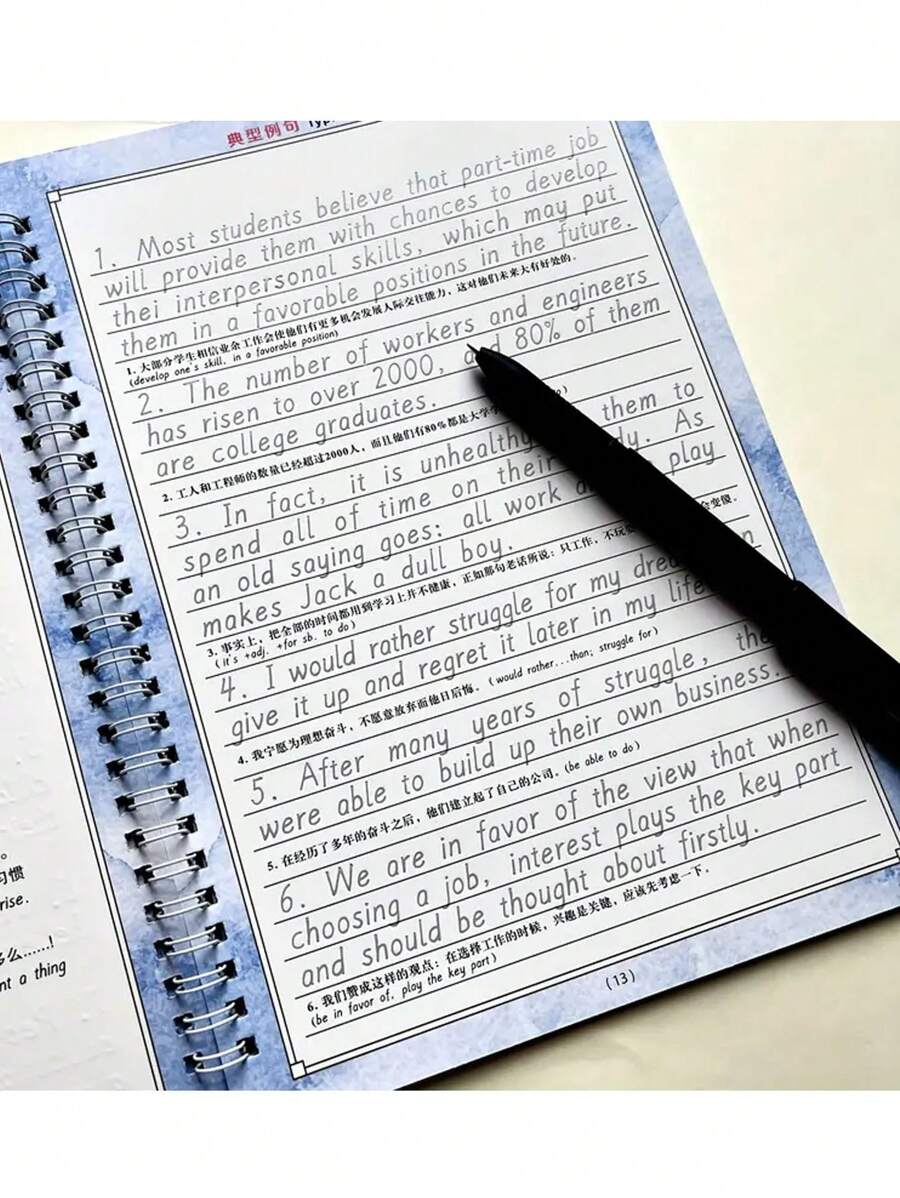 典型例句 Typ
1. Most students believe that part-time job
will provide them with chances to develop
thei interpersonal skills, which may put
them in a favorable positions in the future.
1. 大部分学生相信业余工作会使他们有更多机会发展人际交往能力，这对他们未来大有好处的。
(develop one's skill, in a favorable position)
2. The number of workers and engineers
has risen to over 2000, and 80% of them
are college graduates.
2. 工人和工程师的数量已经超过2000人，而且他们有80%都是大学
3. In fact, it is unhealthy them to
spend all of time on their As
an old saying goes: all work play
makes Jack a dull boy.
3. 事实上，把全部的时间都用到学习上并不健康，正如那句老话所说：只工作，不玩 会变傻。
(it's +adj. +for sb. to do)
4. I would rather struggle for my
give it up and regret it later in my
4. 我宁愿为理想奋斗，不愿意放弃而他日后悔。(would rather...than; struggle for)
5. After many years of struggle,
were able to build up their own business.
5. 在经历了多年的奋斗之后，他们建立起了自己的公司。(be able to do)
6. We are in favor of the view that when
choosing a job, interest plays the key part
and should be thought about firstly.
6. 我们赞成这样的观点：在选择工作的时候，兴趣是关键，应该先考虑一下。
(be in favor of, play the key part)
(13)
。
习惯
rise.
多么......!
nt a thing